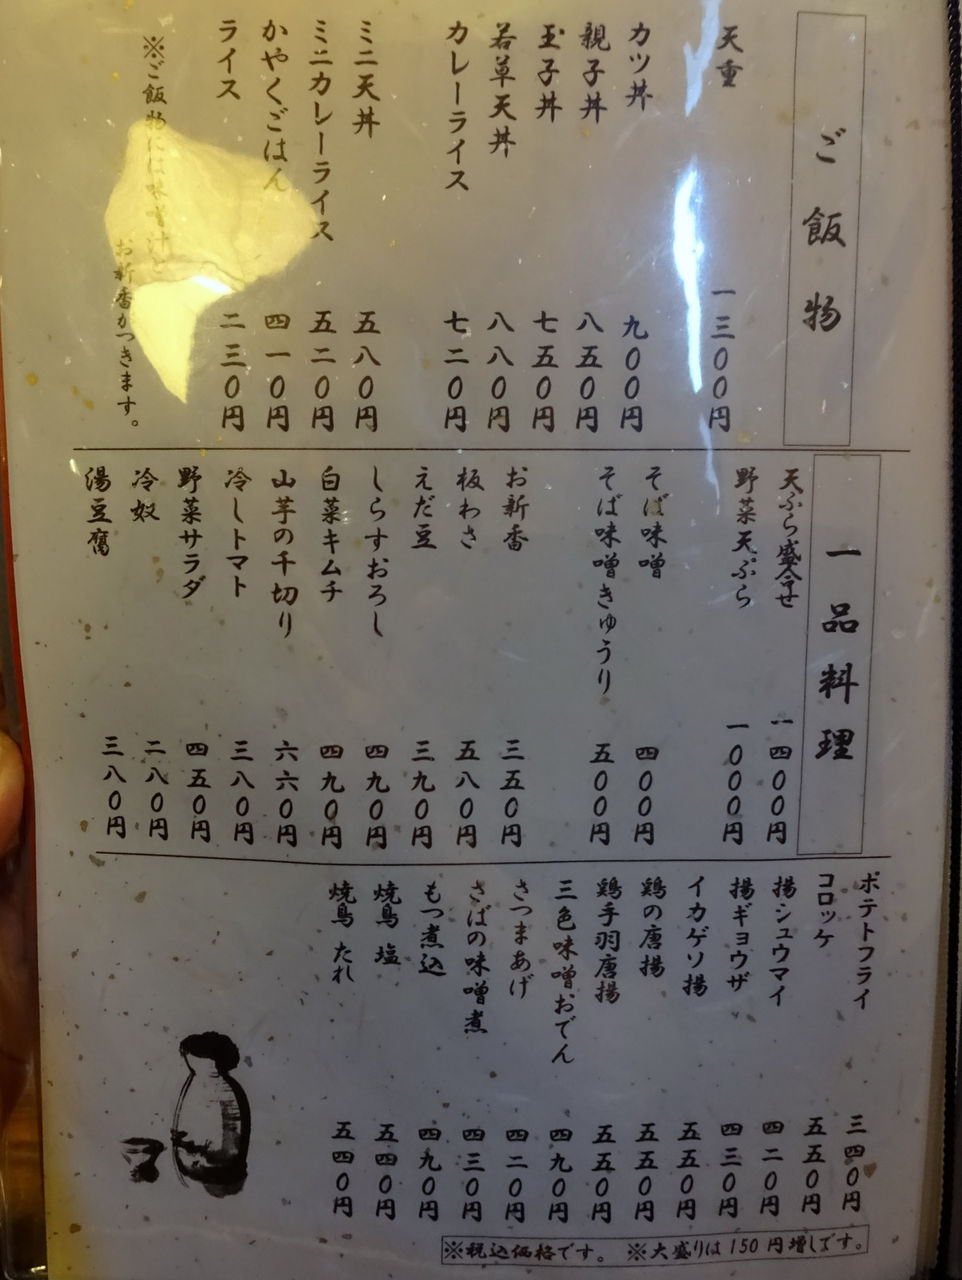 ご飯物
天重 一三〇〇円
カツ丼 九〇〇円
親子丼 八五〇円
玉子丼 七五〇円
若草天丼 八八〇円
カレーライス 七二〇円
ミニ天丼 五八〇円
ミニカレーライス 五二〇円
かやくごはん 四一〇円
ライス 二三〇円
※ご飯物には味噌汁と
お新香がつきます。
一品料理
天ぷら盛合せ 一四〇〇円
野菜天ぷら 一〇〇〇円
そば味噌 四〇〇円
そば味噌きゅうり 五〇〇円
お新香 三五〇円
板わさ 五八〇円
えだ豆 三九〇円
しらすおろし 四九〇円
白菜キムチ 四九〇円
山芋の千切り 六六〇円
冷しトマト 三八〇円
野菜サラダ 四五〇円
冷奴 二八〇円
湯豆腐 三八〇円
ポテトフライ 三四〇円
コロッケ 五五〇円
揚シュウマイ 四二〇円
揚ギョウザ 四三〇円
イカゲソ揚 五五〇円
鶏の唐揚 五五〇円
鶏手羽唐揚 五五〇円
三色味噌おでん 四九〇円
さつまあげ 四二〇円
さばの味噌煮 四三〇円
もつ煮込 四九〇円
焼鳥 塩 五四〇円
焼鳥 たれ 五四〇円
※税込価格です。 ※大盛りは150円増しです。